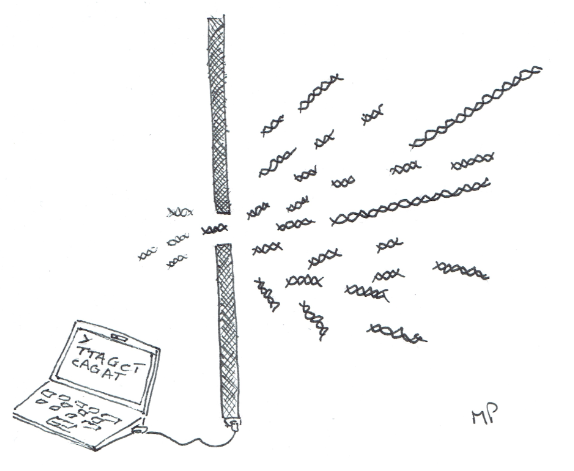 >
TTAGCT
CAGAT
MP